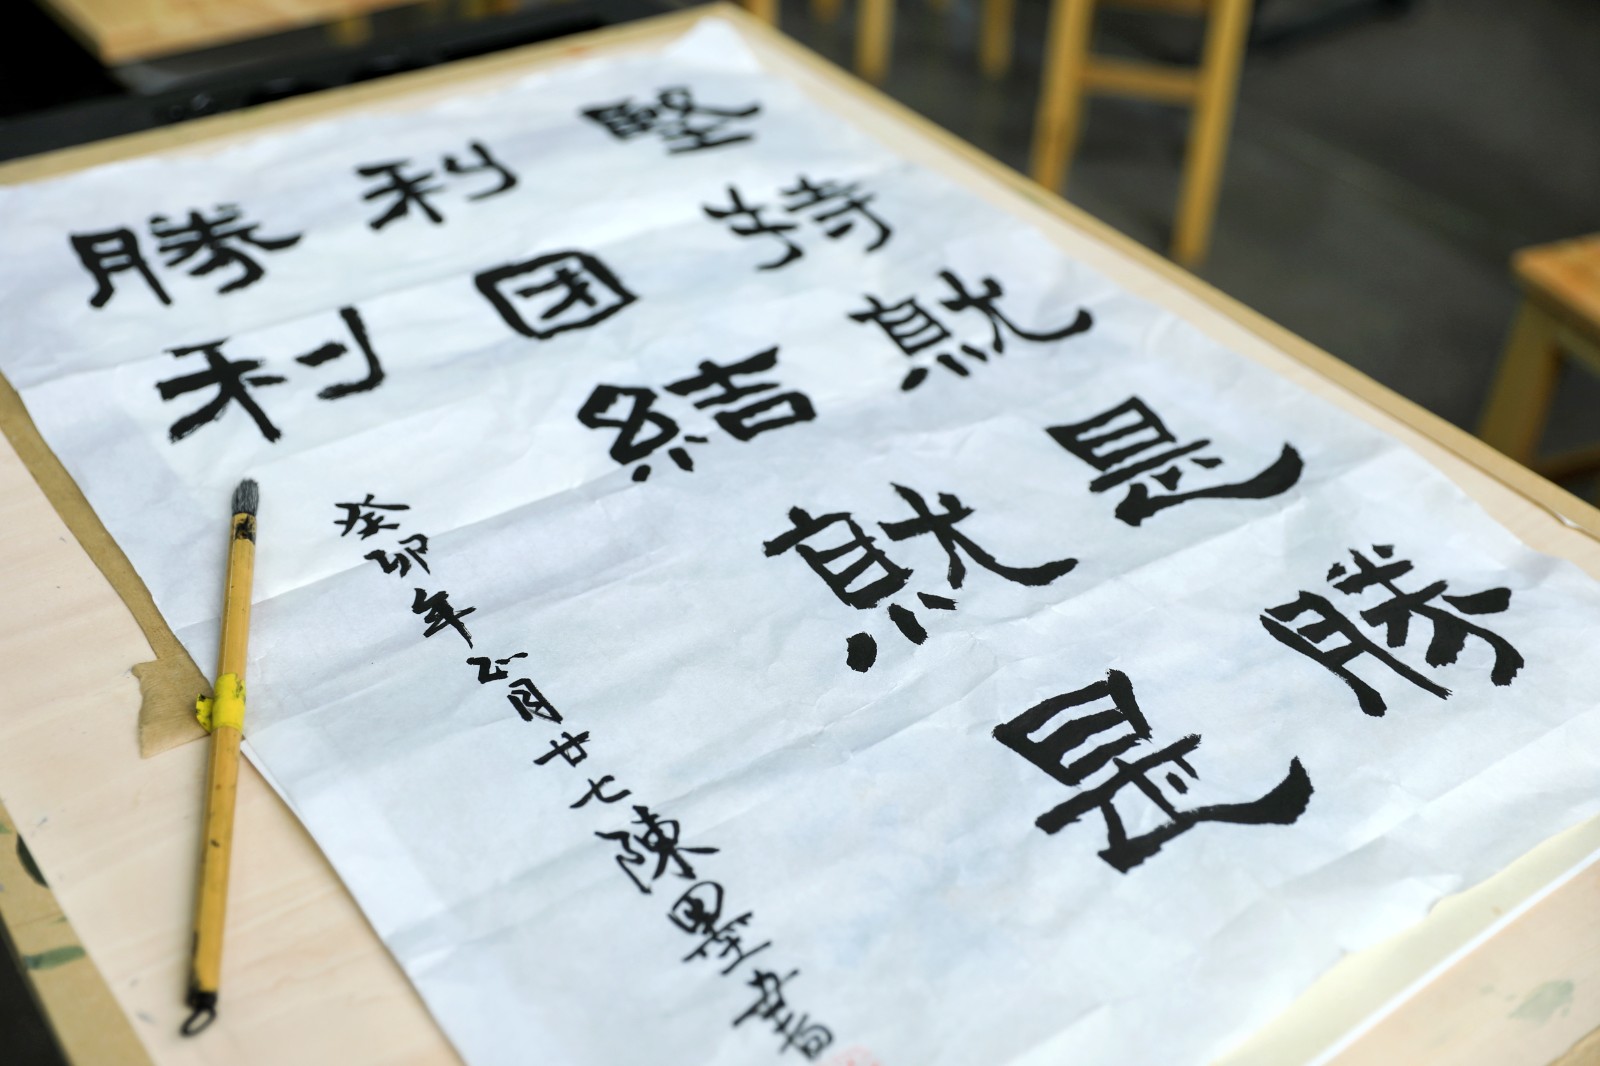 堅持就是勝
利团結就是
勝利
癸卯年正月廿七陳墨書